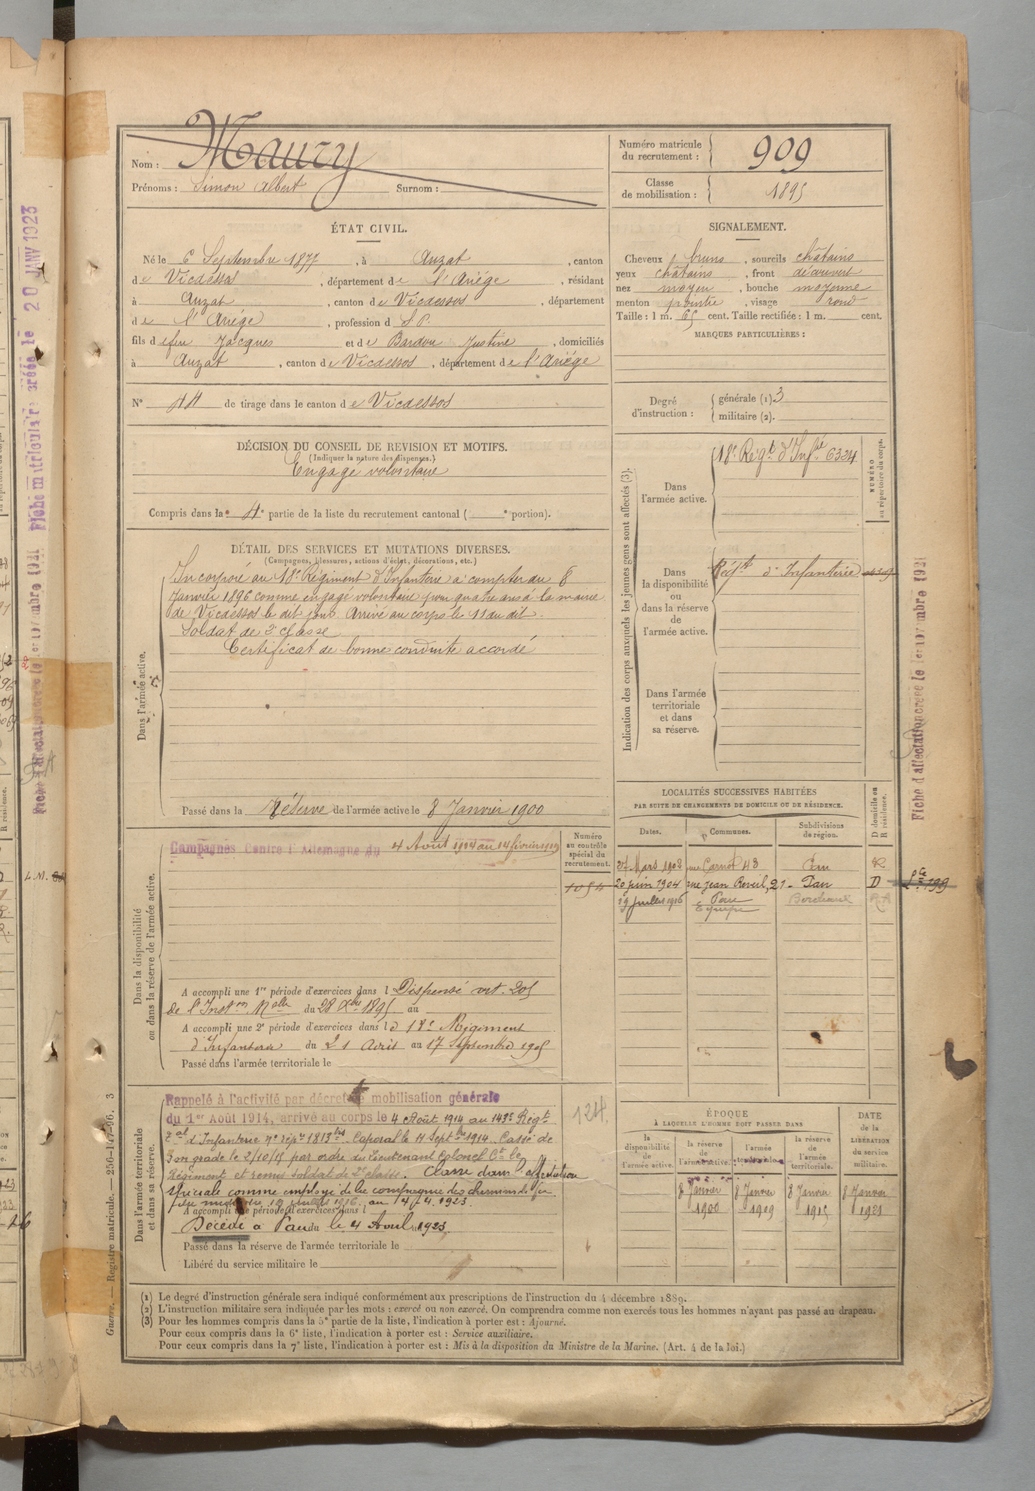 Nom : Maury
Prénoms : Simon Albert Surnom :
Numéro matricule du recrutement : 909
Classe de mobilisation : 1895
ÉTAT CIVIL.
Né le 6 Septembre 1877, à Auzat, canton
de Vicdessos, département de l'Ariége, résidant
à Auzat, canton de Vicdessos, département
de l'Ariége, profession d S.P.
fils de feu Jacques et de Bardou Justine, domiciliés
à Auzat, canton de Vicdessos, département de l'Ariége
N° 44 de tirage dans le canton de Vicdessos
SIGNALEMENT.
Cheveux bruns, sourcils châtains
yeux châtains, front découvert
nez moyen, bouche moyenne
menton pointu, visage rond
Taille : 1 m. 65 cent. Taille rectifiée : 1 m. cent.
MARQUES PARTICULIÈRES :
Degré d'instruction : générale (1) 3
militaire (2).
DÉCISION DU CONSEIL DE REVISION ET MOTIFS.
(Indiquer la nature des dispenses.)
Engagé volontaire
Compris dans la 4e partie de la liste du recrutement cantonal ( e portion).
DÉTAIL DES SERVICES ET MUTATIONS DIVERSES.
(Campagnes, blessures, actions d'éclat, décorations, etc.)
Dans l'armée active.
Incorporé au 18e Régiment d'Infanterie à compter du 8
Janvier 1896 comme engagé volontaire pour quatre ans à la mairie
de Vicdessos le dit jour. Arrivé au corps le 11 du dit.
Soldat de 2e classe
Certificat de bonne conduite accordé
Passé dans la Réserve de l'armée active le 8 Janvier 1900
Indication des corps auxquels les jeunes gens sont affectés (3).
NUMÉRO au répertoire du corps.
Dans l'armée active.
18e Régt d'Infie 6324
Dans la disponibilité ou dans la réserve de l'armée active.
Régt d'Infanterie
Dans l'armée territoriale et dans sa réserve.
LOCALITÉS SUCCESSIVES HABITÉES
PAR SUITE DE CHANGEMENTS DE DOMICILE OU DE RÉSIDENCE.
Dates. Communes. Subdivisions de région. D domicile ou R résidence.
27 Mars 1903 rue Carnot 43 R
20 juin 1904 rue Jean Reveil, 21 - Pau D
19 juillet 1906 Bordeaux
Dans la disponibilité ou dans la réserve de l'armée active.
Numéro au contrôle spécial du recrutement.
Campagnes Contre l'Allemagne du 4 Août 1914 au 14 février 1919
A accompli une 1re période d'exercices dans l Dispensé art. 205
de l'Inston Melle du 28 Xbre 1895 au
A accompli une 2e période d'exercices dans le 18e Régiment
d'Infanterie du 21 Avril au 17 Septembre 1905
Passé dans l'armée territoriale le
Dans l'armée territoriale et dans sa réserve.
Rappelé à l'activité par décret de mobilisation générale
du 1er Août 1914, arrivé au corps le 4 Août 1914 au 143e Régt
Tal d'Infanterie Caporal le 11 Septbre 1914. Cassé de
son grade le 2/10/15 par ordre du Lieutenant Colonel Ct le
Régiment et remis soldat de 2e classe. Classé dans l'affectation
spéciale comme employé de la compagnie des chemins de fer
A accompli période d'exercices dans l
Décédé à Pau le 4 Avril 1923
Passé dans la réserve de l'armée territoriale le
Libéré du service militaire le
124
ÉPOQUE À LAQUELLE L'HOMME DOIT PASSER DANS
la disponibilité de l'armée active.
la réserve de l'armée active.
l'armée territoriale.
la réserve de l'armée territoriale.
DATE de la LIBÉRATION du service militaire.
8 Janvier 1900
8 Janvier 1909
8 Janvier 1915
8 Janvier 1921
(1) Le degré d'instruction générale sera indiqué conformément aux prescriptions de l'instruction du 4 décembre 1889.
(2) L'instruction militaire sera indiquée par les mots : exercé ou non exercé. On comprendra comme non exercés tous les hommes n'ayant pas passé au drapeau.
(3) Pour les hommes compris dans la 5e partie de la liste, l'indication à porter est : Ajourné.
Pour ceux compris dans la 6e liste, l'indication à porter est : Service auxiliaire.
Pour ceux compris dans la 7e liste, l'indication à porter est : Mis à la disposition du Ministre de la Marine. (Art. 4 de la loi.)
Fiche matriculaire créée le 20 JANV 1923